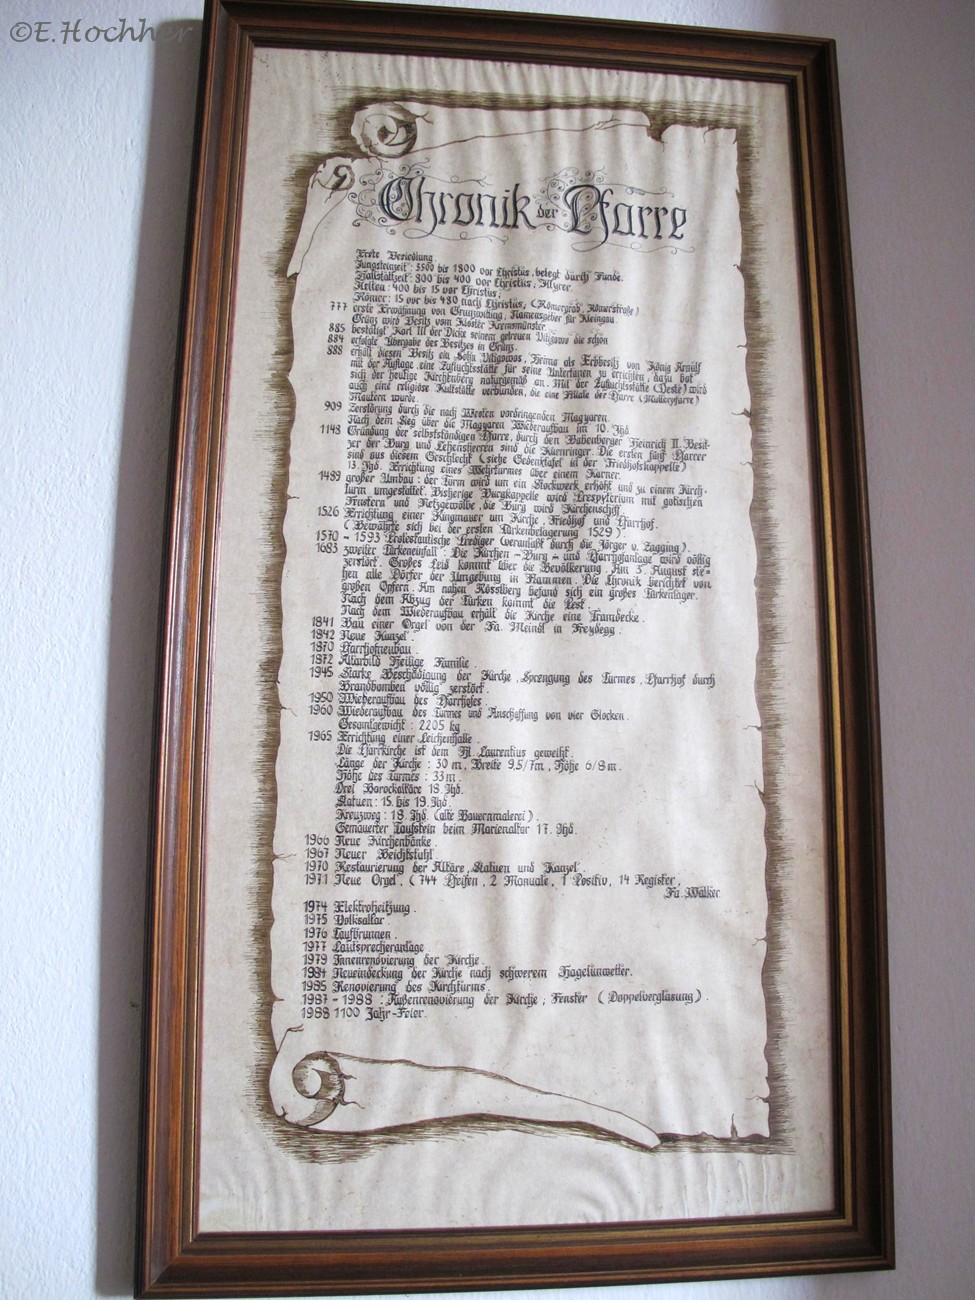 ©E.Hochher
Chronik der Pfarre
Erste Besiedlung.
Jungsteinzeit: 5500 bis 1800 vor Christus, belegt durch Funde.
Hallstattzeit: 800 bis 400 vor Christus, Illyrer.
Kelten: 400 bis 15 vor Christus;
Römer: 15 vor bis 480 nach Christus, (Römergrab, Römerstraße)
777 erste Erwähnung von Grunzwitung, Namensgeber für Kleingau.
Grünz wird Besitz vom Kloster Kremsmünster.
885 bestätigt Karl III der Dicke seinem getreuen Vitigowo die schon
884 erfolgte Übergabe des Besitzes in Grünz.
888 erhält diesen Besitz ein Sohn Vitigowos, Heimo als Erbbesitz von König Arnulf
mit der Auflage, eine Zufluchtsstätte für seine Untertanen zu errichten, dazu bot
sich der heutige Kirchenberg naturgemäß an. Mit der Zufluchtsstätte (Veste) wird
auch eine religiöse Kultstätte verbunden, die eine Filiale der Pfarre (Mutterpfarre)
Mautern wurde.
909 Zerstörung durch die nach Westen vordringenden Magyaren.
Nach dem Sieg über die Magyaren Wiederaufbau im 10. Jhd.
1148 Gründung der selbstständigen Pfarre, durch den Babenberger Heinrich II. Besit-
zer der Burg und Lehensherren sind die Kuenringer. Die ersten fünf Pfarrer
sind aus diesem Geschlecht (siehe Gedenktafel in der Friedhofskappelle)
13. Jhd. Errichtung eines Wehrturmes über einem Karner.
1489 großer Umbau: der Turm wird um ein Stockwerk erhöht und zu einem Kirch-
turm umgestaltet. Bisherige Burgkappelle wird Presbyterium mit gotischen
Fenstern und Netzgewölbe, die Burg wird Kirchenschiff.
1526 Errichtung einer Ringmauer um Kirche, Friedhof und Pfarrhof.
(Bewährte sich bei der ersten Türkenbelagerung 1529).
1570 - 1593 Protestantische Prediger (veranlaßt durch die Jörger v. Zagging).
1683 zweiter Türkeneinfall: Die Kirchen - Burg - und Pfarrhofanlage wird völlig
zerstört. Großes Leid kommt über die Bevölkerung. Am 5. August ste-
hen alle Dörfer der Umgebung in Flammen. Die Chronik berichtet von
großen Opfern. Am nahen Rösslberg befand sich ein großes Türkenlager.
Nach dem Abzug der Türken kommt die Pest.
Nach dem Wiederaufbau erhält die Kirche eine Tramdecke.
1841 Bau einer Orgel von der Fa. Meindl in Freydegg.
1842 Neue Kanzel.
1870 Pfarrhofneubau.
1872 Altarbild Heilige Familie.
1945 Starke Beschädigung der Kirche, Sprengung des Turmes, Pfarrhof durch
Brandbomben völlig zerstört.
1950 Wiederaufbau des Pfarrhofes.
1960 Wiederaufbau des Turmes und Anschaffung von vier Glocken.
Gesamtgewicht: 2205 kg
1965 Errichtung einer Leichenhalle.
Die Pfarrkirche ist dem Hl. Laurentius geweiht.
Länge der Kirche: 30 m, Breite 9,5/7m, Höhe 6/8 m.
Höhe des Turmes: 33 m.
Drei Barockaltäre 18. Jhd.
Statuen: 15. bis 19. Jhd.
Kreuzweg: 18. Jhd. (alte Bauernmalerei).
Gemauerter Taufstein beim Marienaltar 17. Jhd.
1966 Neue Kirchenbänke.
1967 Neuer Beichtstuhl
1970 Restaurierung der Altäre, Statuen und Kanzel.
1971 Neue Orgel, (744 Pfeifen, 2 Manuale, 1 Positiv, 14 Register,
Fa. Walker
1974 Elektroheitzung.
1975 Volksaltar.
1976 Taufbrunnen.
1977 Lautsprecheranlage
1979 Innenrenovierung der Kirche.
1984 Neueindeckung der Kirche nach schwerem Hagelunwetter.
1985 Renovierung des Kirchturms.
1987 - 1988: Außenrenovierung der Kirche, Fenster (Doppelverglasung).
1988 1100 Jahr-Feier.